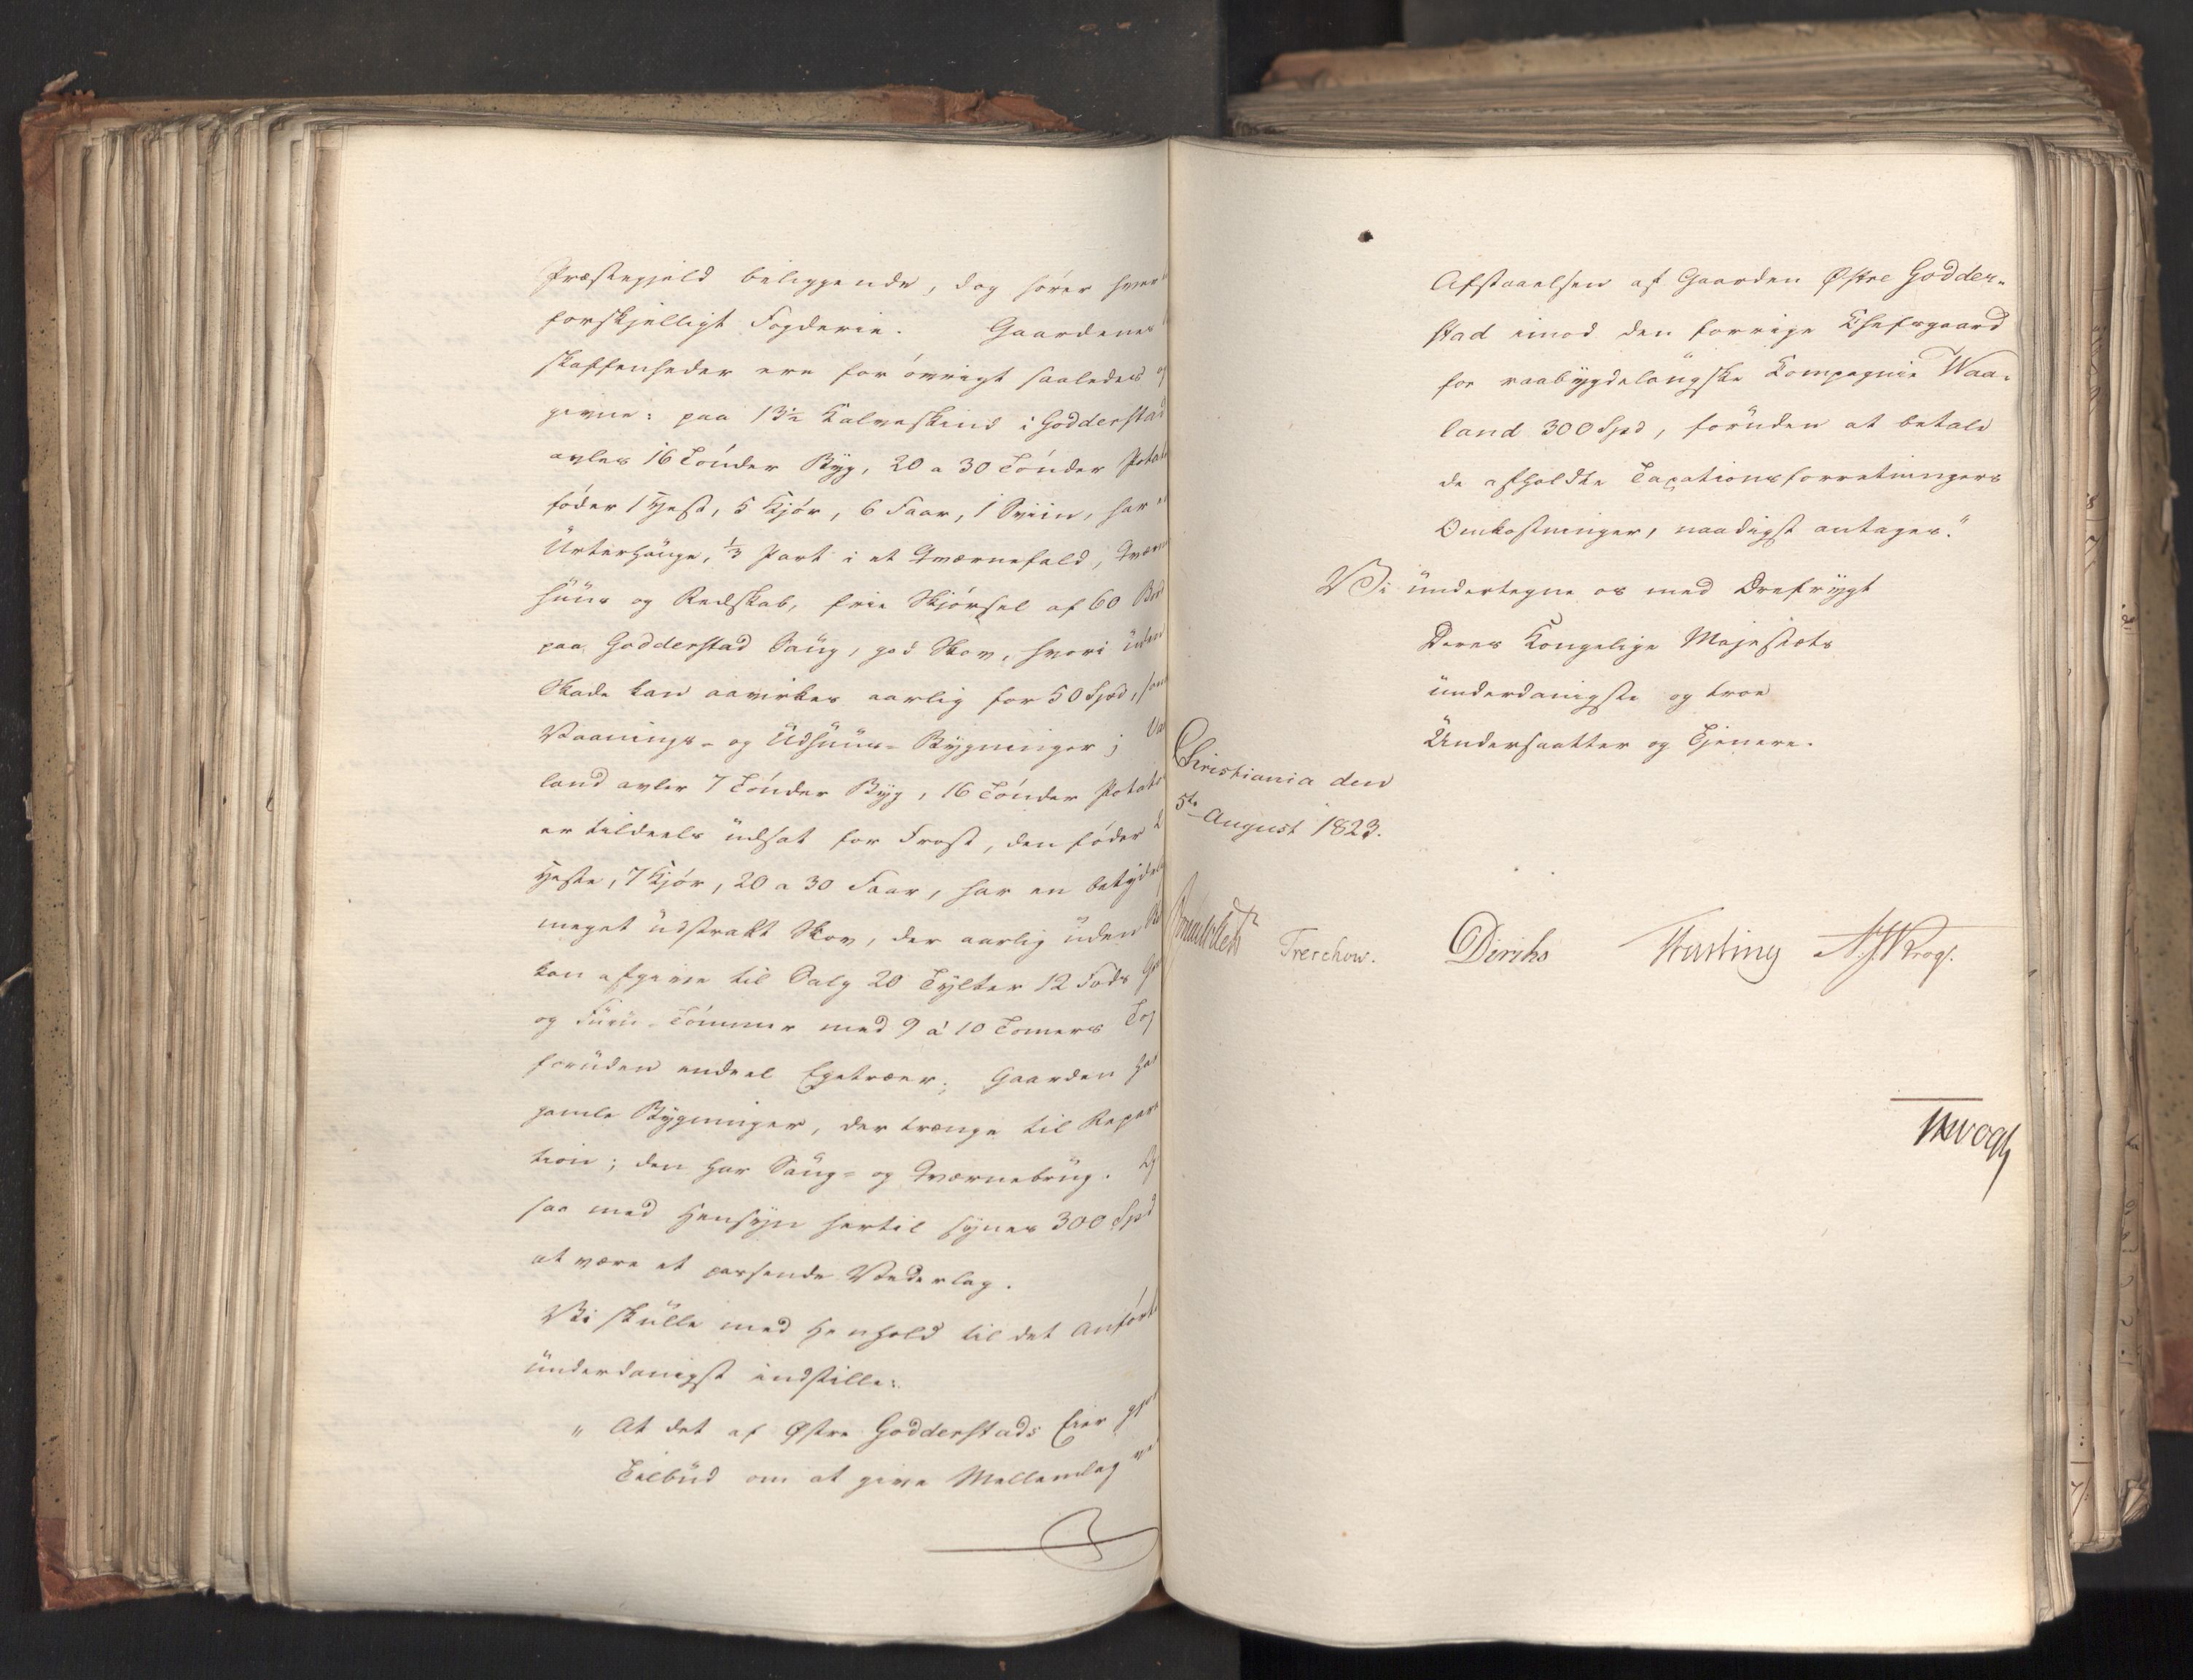 Præstegjeld beliggende, dog hører hver
forskjelligt Fogderie. Gaardenes
skaffenheder ere forøvrigt saaledes
givne: paa 13½ Kalveskind i Godderstad
avles 16 Tønder Byg, 20 a 30 Tønder Potat
føder 1 Hest, 5 Kjør, 6 Faar, 1 Sviin, har
Urterhauge, ⅓ Part i et Qværnefald, Qværn
huus og Redskab, frie Skjørsel af 60
paa Godderstad Saug, god Skov, hvori uden
Skade kan aavirkes aarlig for 50 Spd, samt
Vaanings- og Udhuus-Bygninger; Va
land avler 7 Tønder Byg, 16 Tønder Potat
er tildeels udsat for Frost, den føder 2
Heste, 7 Kjør, 20 a 30 Faar, har en betydelig
meget udstrakt Skov, der aarlig uden
kan afgive til Salg 20 Tylter 12 Fods
og Furu-Tømmer med 9 á 10 Tomers Top
foruden endeel Egetræer; Gaarden har
gamle Bygninger, der trænge til Repara
tion; den har Saug- og Qværnebrug.
saa med Hensyn hertil synes 300 Spd
at være et passende Vederlag.
Vi skulle med Henhold til det Anført
underdanigst indstille:
" At det af Østre Godderstads Eier
Tilbud om at give Mellemlag
Afstaaelsen af Gaarden Østre Godder-
stad imod den forrige Chefsgaard
for raabygdelaugske Compagnie Waa-
land 300 Spd, foruden at betale
de afholdte Taxationsforretningers
Omkostninger, naadigst antages."
Vi undertegne os med Ærefrygt
Deres Kongelige Majestæts
underdanigste og troe
Undersaatter og Tjenere.
Christiania den
5te August 1823.
Treschow. Diriks Fasting N. J. Krog.